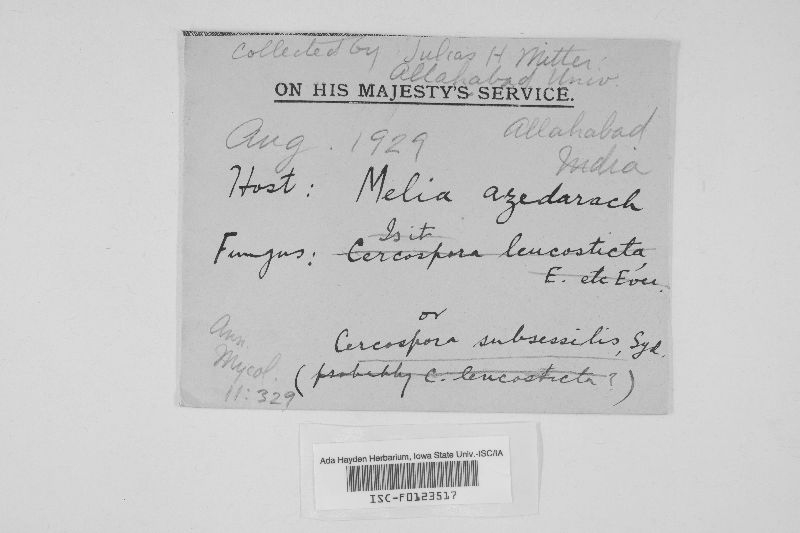 Collected by Julias H. Mitter.
Allahabad Univ.
ON HIS MAJESTY'S SERVICE.
Aug. 1929
Allahabad
India
Host: Melia azedarach
Is it
Fungus: Cercospora leucosticta,
E. etc Ever.
or
Cercospora subsessilis, Syd.
(probably C. leucosticta?)
Ann.
Mycol.
11:329
Ada Hayden Herbarium, Iowa State Univ.-ISC/IA
ISC-F0123517